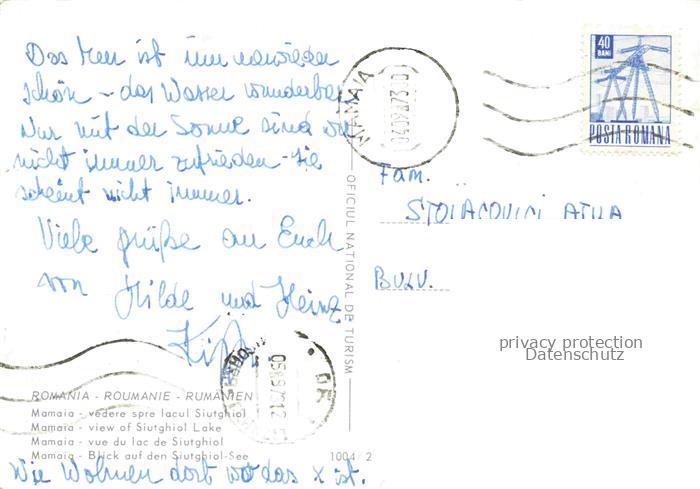 Das Meer ist immer wieder
schön - das Wasser wunderbar
Nur mit der Sonne sind wir
nicht immer zufrieden - sie
scheint nicht immer.
Viele grüße an Euch
von Hilde und Heinz
MAMAIA
40
BANI
POSTA ROMANA
Fam.
STOIACOVICI ATILA
BULV.
privacy protection
Datenschutz
OFICIUL NATIONAL DE TURISM
ROMANIA - ROUMANIE - RUMANIEN
Mamaia - vedere spre lacul Siutghiol
Mamaia - view of Siutghiol Lake
Mamaia - vue du lac de Siutghiol
Mamaia - Blick auf den Siutghiol-See
1004 2
Wir Wohnen dort wo das x ist.